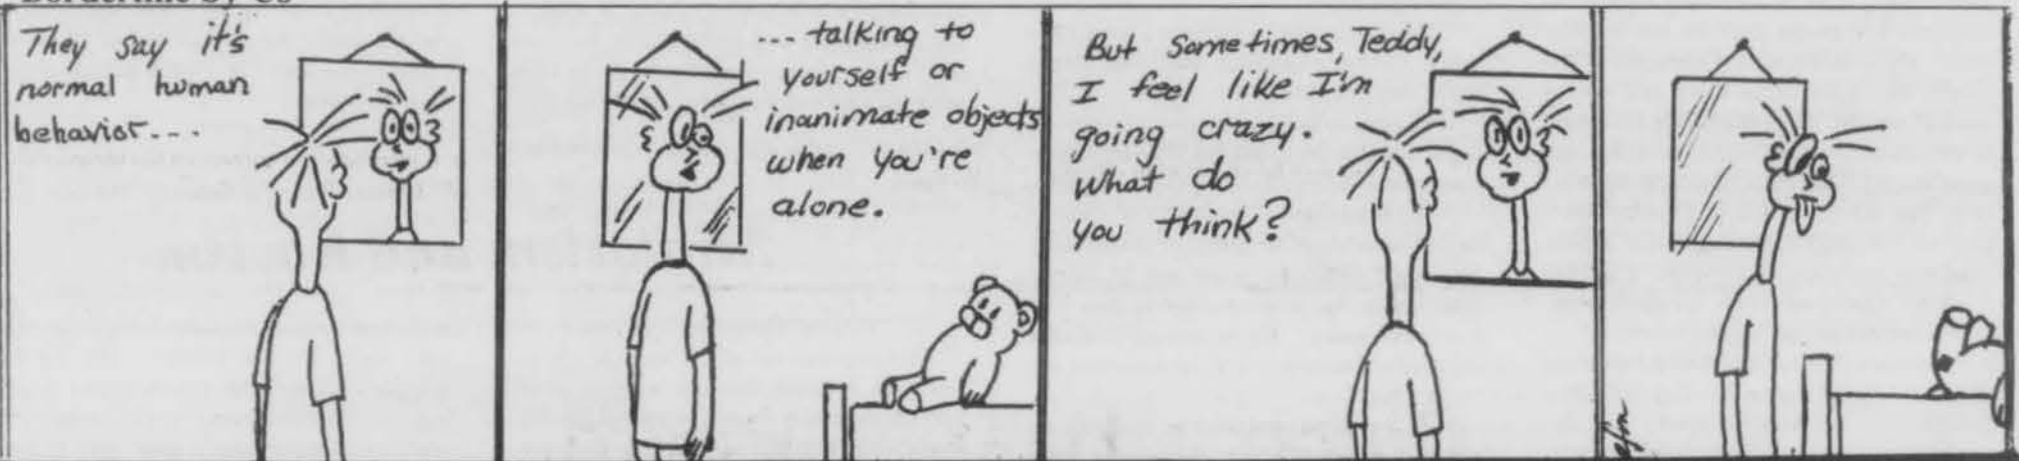 Borderline by Us
They say it's
normal human
behavior...
... talking to
yourself or
inanimate objects
when you're
alone.
But sometimes, Teddy,
I feel like I'm
going crazy.
What do
you think?